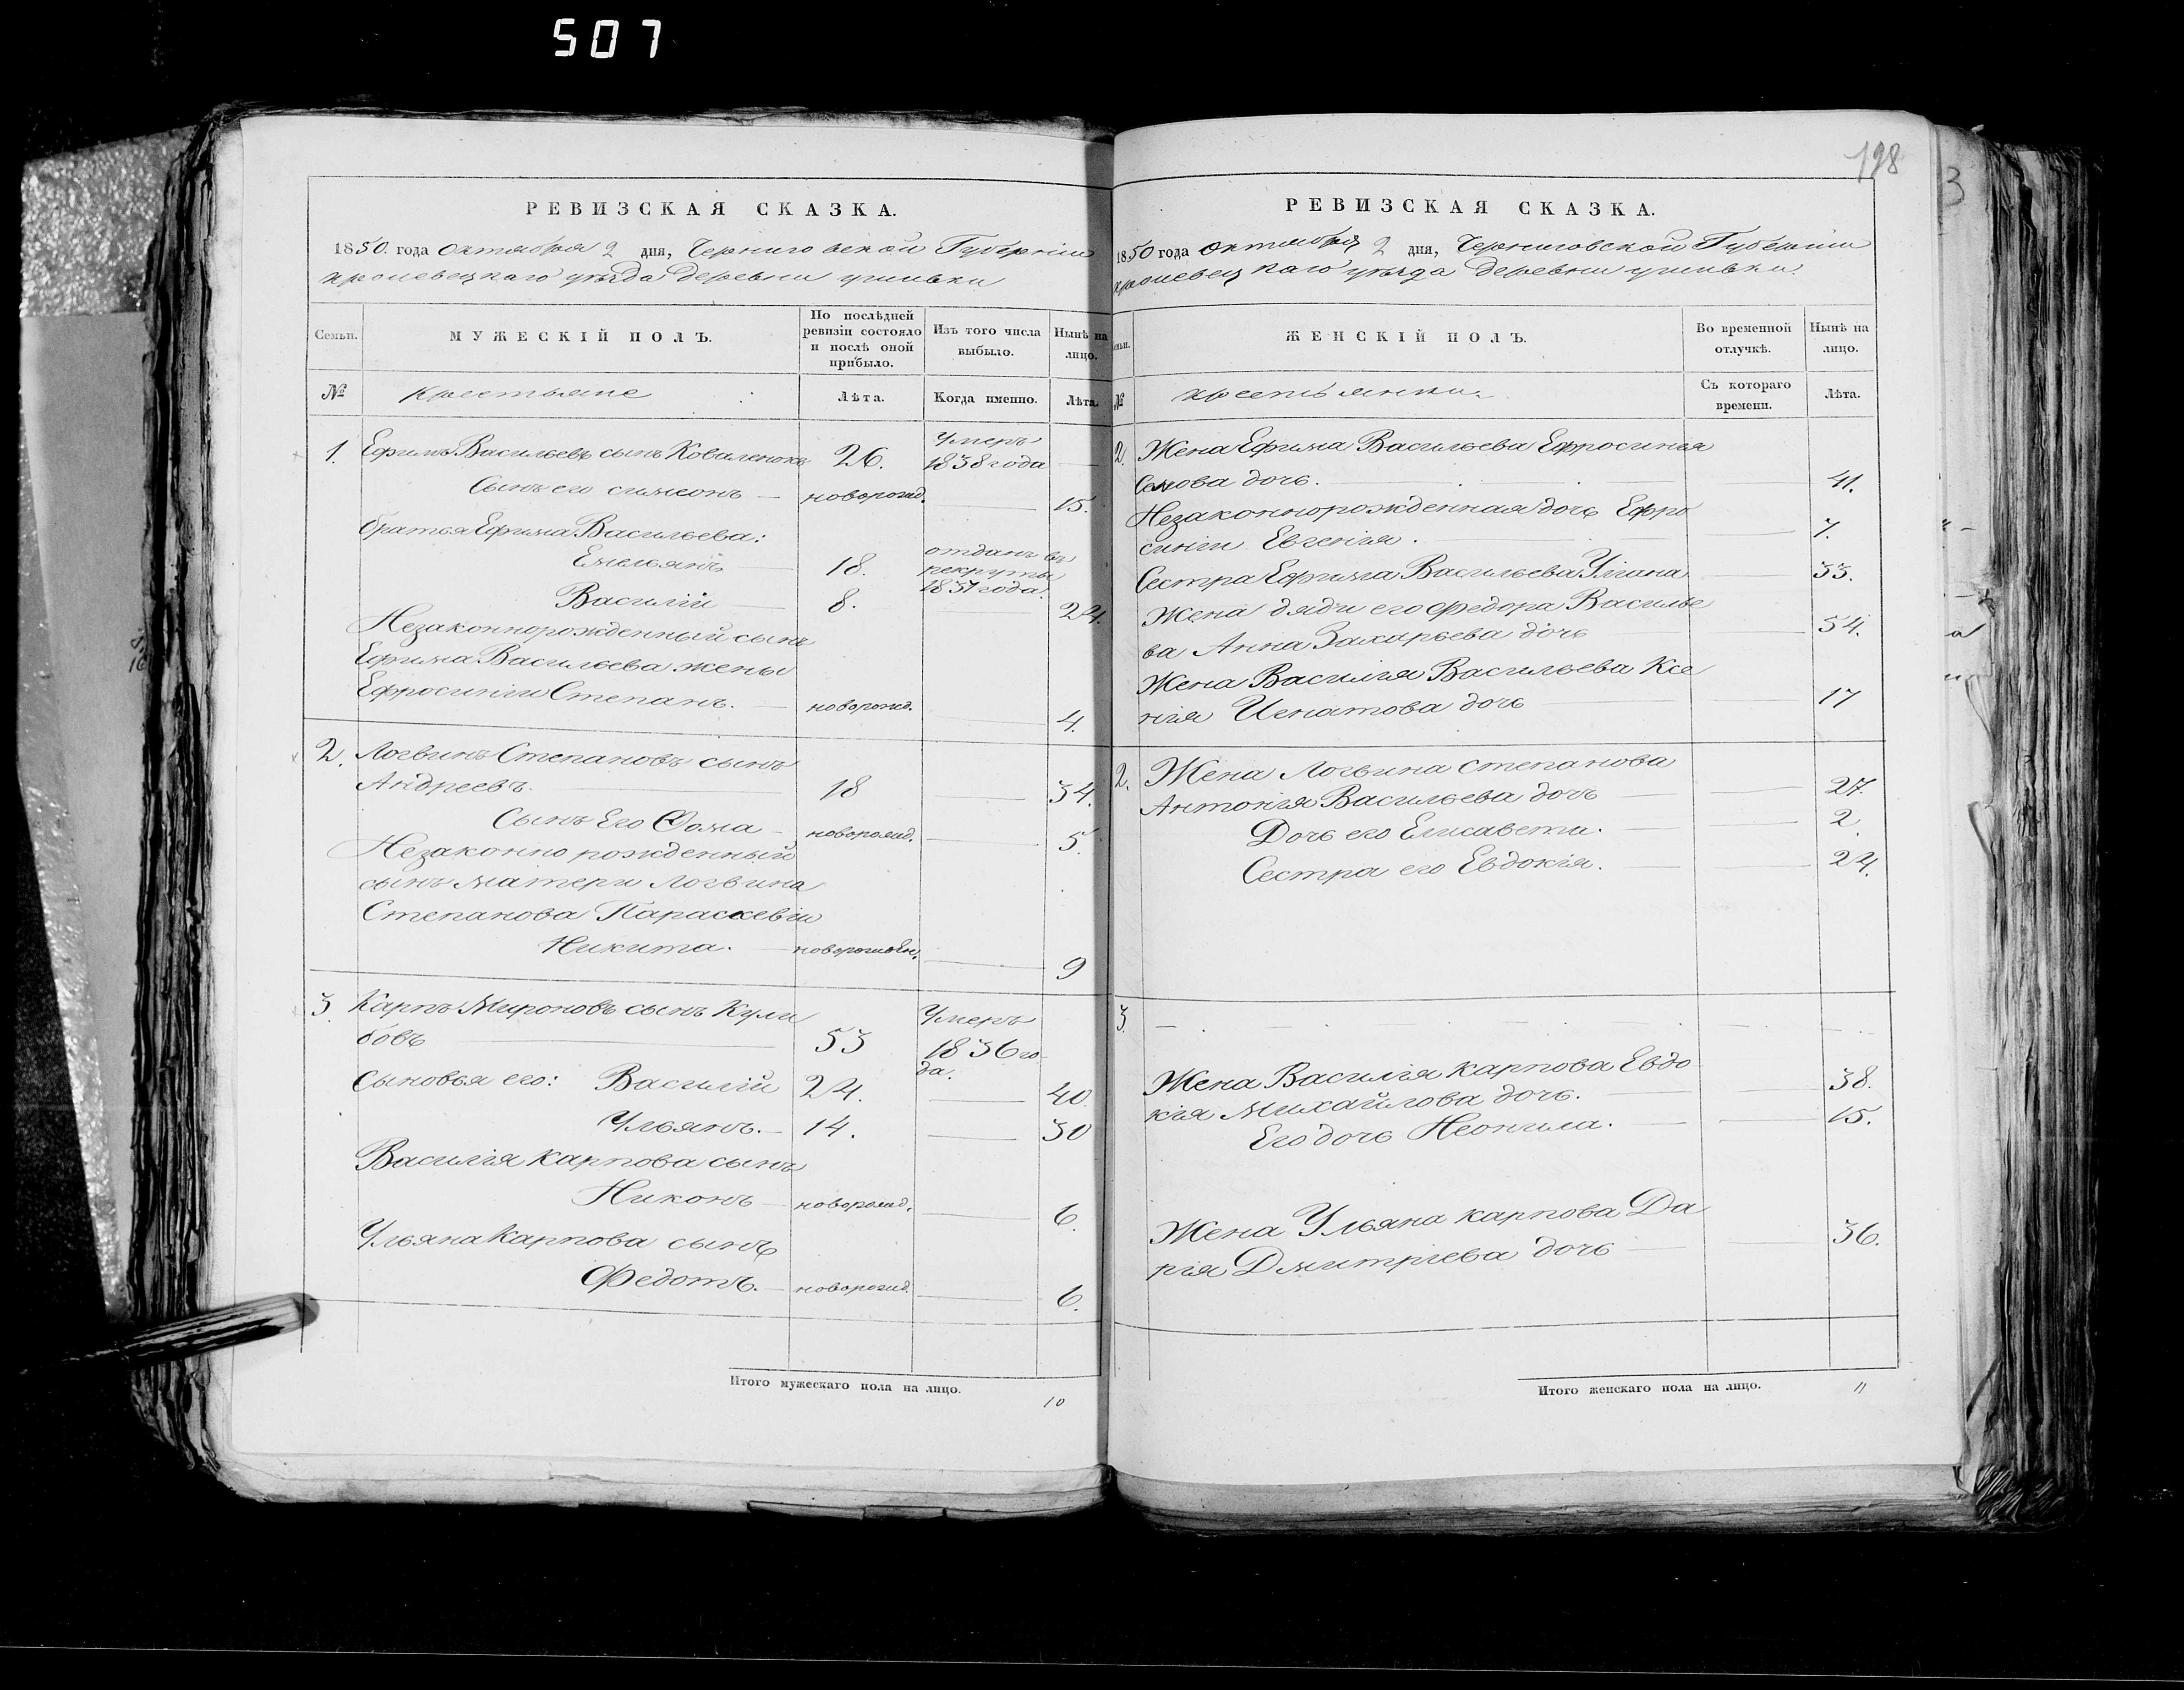 507
198
РЕВИЗСКАЯ СКАЗКА.
1850. года Октября 2 дня, Черниговской Губерніи
кролевецкаго уезда деревни
Семьи.
МУЖЕСКІЙ ПОЛЪ.
По послѣдней ревизіи состояло и послѣ оной прибыло.
Изъ того числа выбыло.
Нынѣ на лицо.
№
Крестьяне
Лѣта.
Когда именно.
Лѣта.
1. Ефимъ Васильевъ сынъ Коваленокъ 26. Умеръ 1838 года
Сынъ его симеонъ — новорожд. 15.
братья Ефима Васильева:
Емельянъ 18. отданъ въ рекруты 1837 года.
Василій 8. 24.
Незаконнорожденный сынъ
Ефима Васильева жены
Ефросиніи Степанъ. — новорожд. 4.
2. Логвинъ Степановъ сынъ
Андреевъ. 18 34.
Сынъ Его Фома — новорожд. 5.
Незаконно рожденный
сынъ матери Логвина
Степанова Параскевіи
Никита. — новорожден. 9
3 Карпъ Мироновъ сынъ Кули
бовъ 53 Умеръ 1836 года.
Сыновья его: Василій 24. 40
Ульянъ. — 14. 30
Василія Карпова сынъ
Никонъ — новорожд. 6.
Ульяна Карпова сынъ
Федотъ. — новорожд. 6.
Итого мужескаго пола на лицо.
10
РЕВИЗСКАЯ СКАЗКА.
1850 года октября 2 дня, Черниговской Губерніи
кролевецкаго уезда деревни
Семьи.
ЖЕНСКІЙ ПОЛЪ.
Во временной отлучкѣ.
Нынѣ на лицо.
№
крестьянки.
Съ котораго времени.
Лѣта.
2. Жена Ефима Васильева Ефросинья
дочь. 41.
Незаконнорожденная дочь Ефро
синіи Евгенія. 7.
Сестра Ефима Васильева Уліана 33.
Жена дяди его Федора Василье
ва Анна Захарьева дочь 54.
Жена Василія Васильева Ксе
нія Игнатова дочь 17
2. Жена Логвина Степанова
Антонія Васильева дочь 27.
Дочь его Елисавета. 2.
Сестра его Евдокія. 24.
3.
Жена Василія Карпова Евдо
кія Михайлова дочь. 38.
Его дочь Неонила. 15.
Жена Ульяна Карпова Да
рія Дмитріева дочь 36.
Итого женскаго пола на лицо.
11